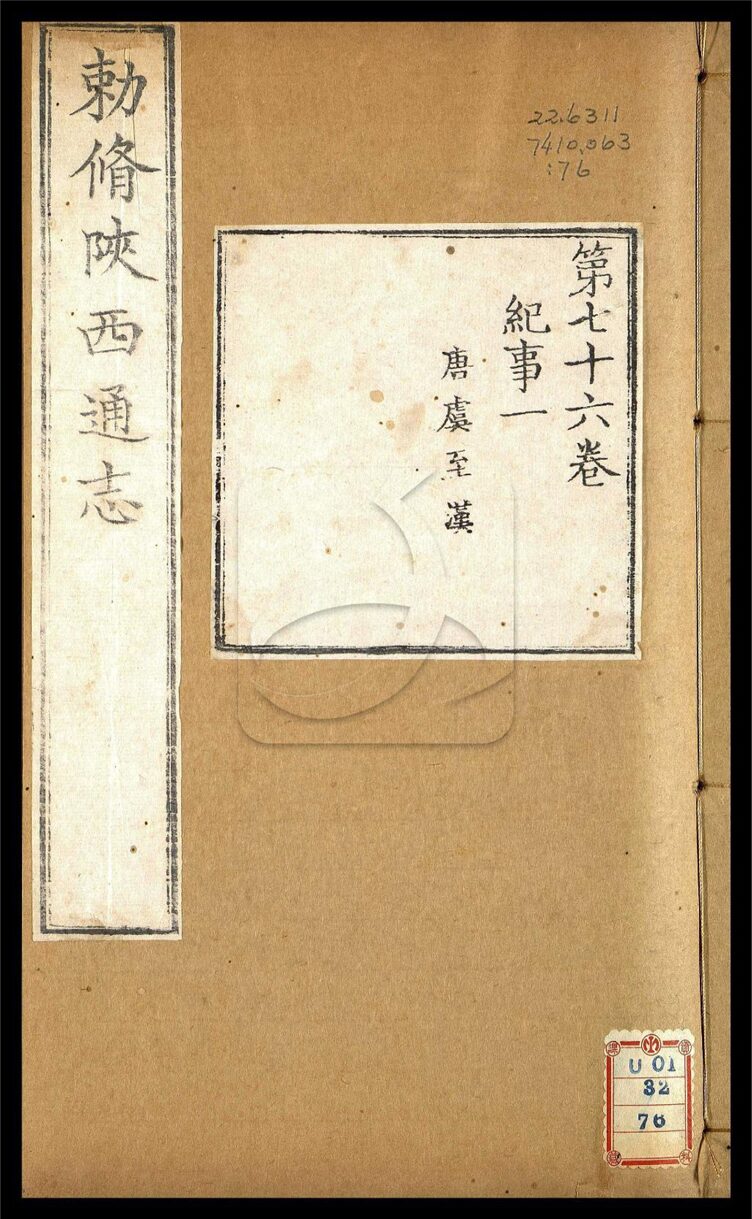 勅脩陝西通志
22.6311
7410.063
:76
第七十六卷
紀事一
唐虞至漢
U 01
32
76